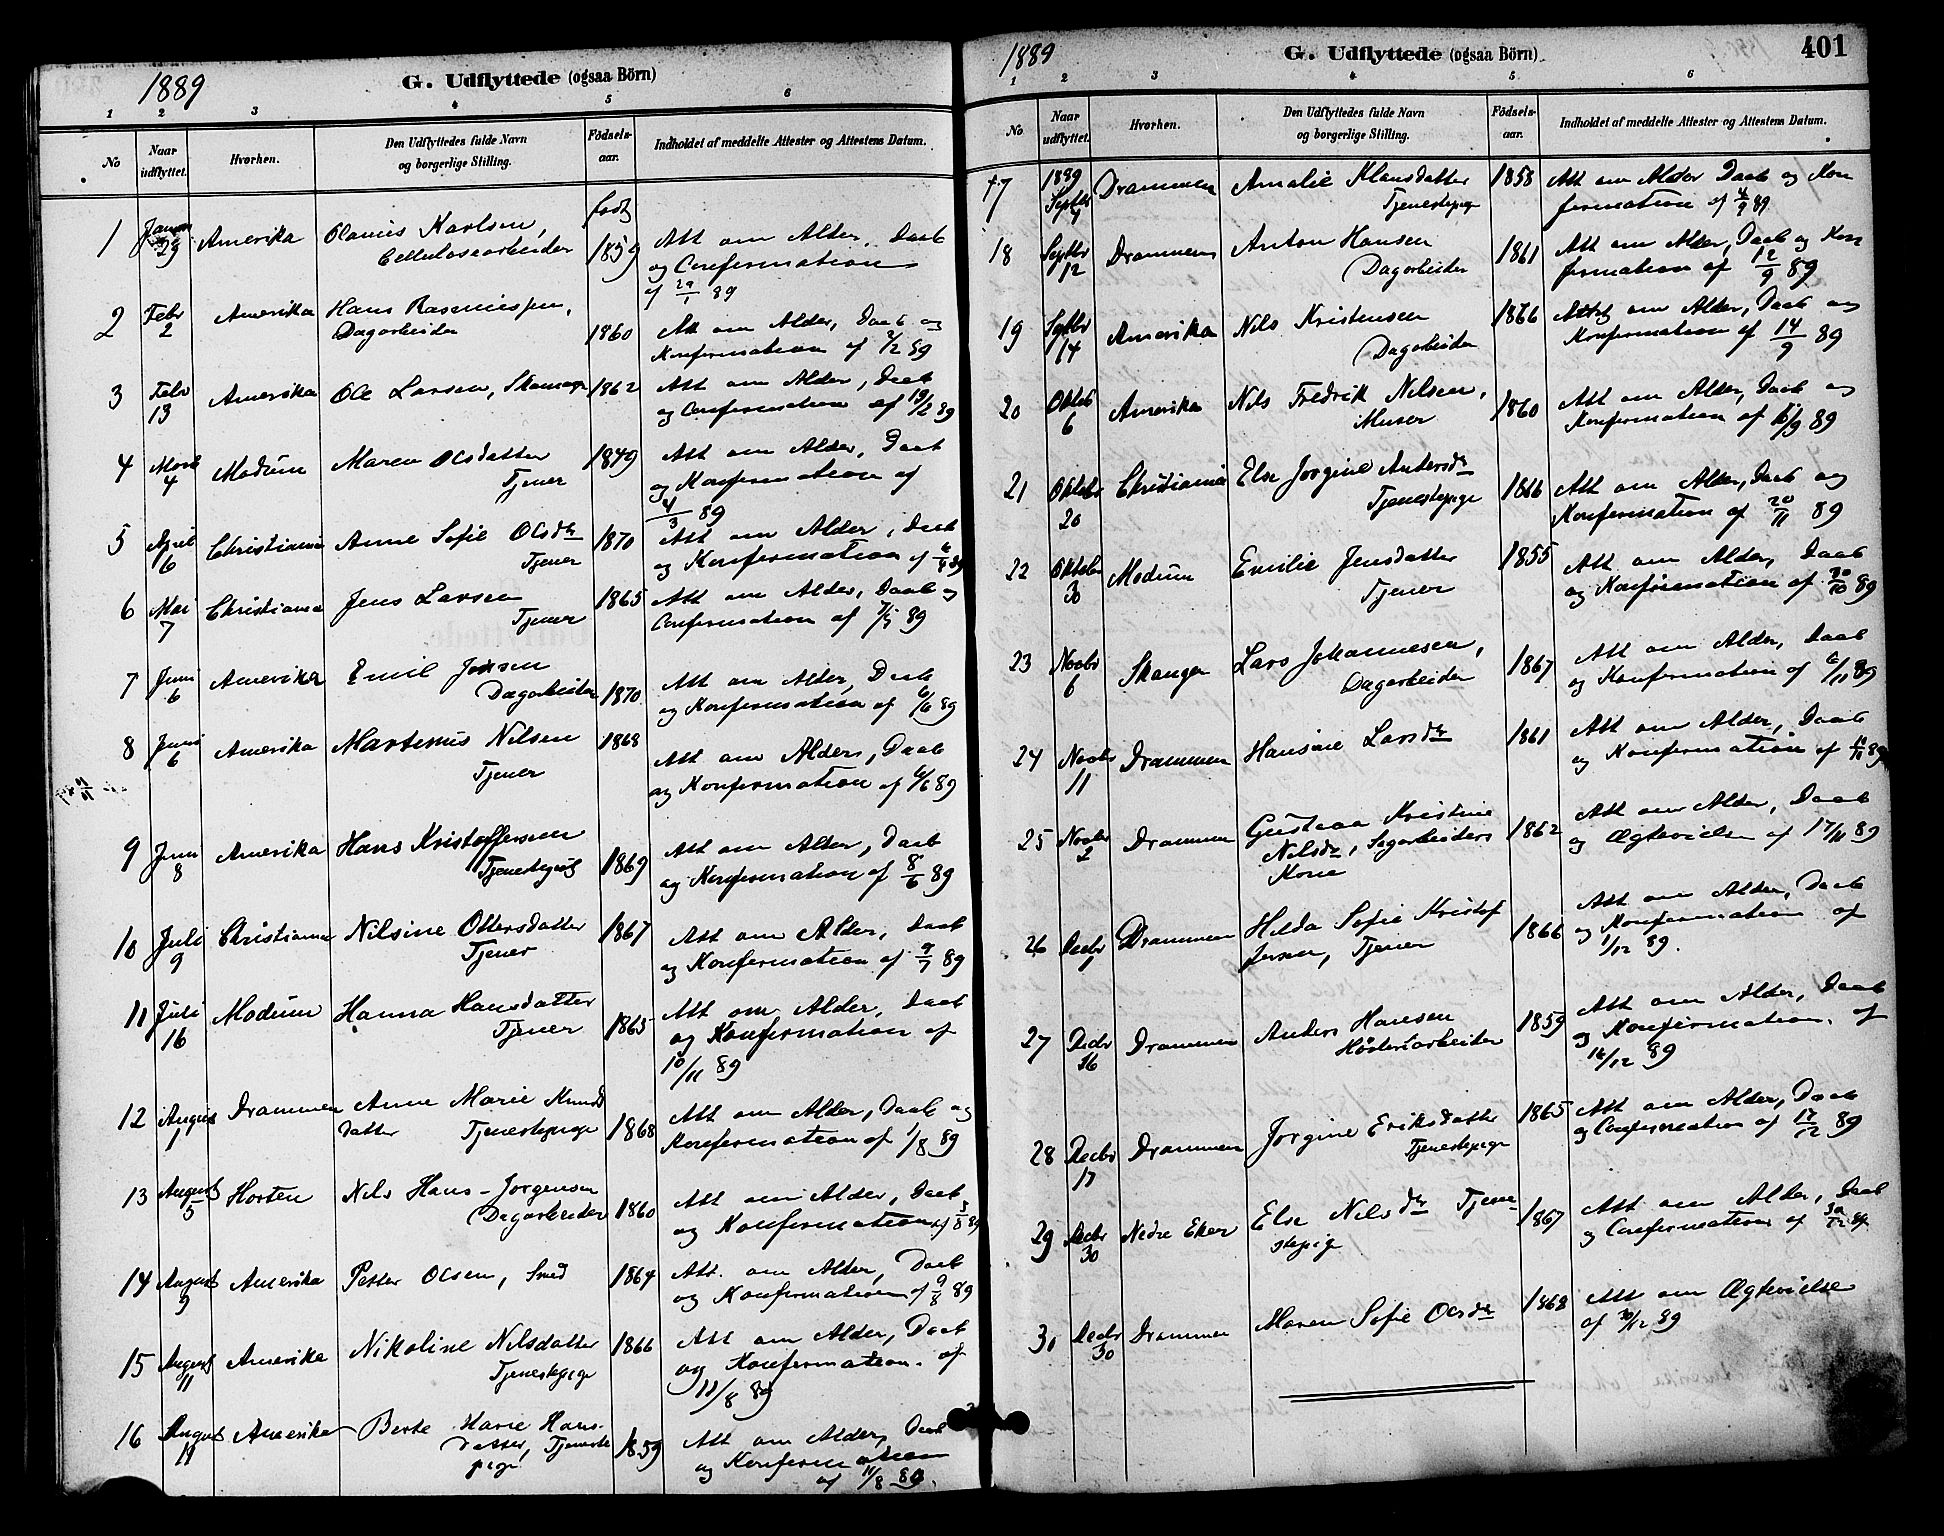 1889
G. Udflyttede (ogsaa Börn)
1 2 3 4 5 6
No
Naar udflyttet.
Hvorhen.
Den Udflyttedes fulde Navn og borgerlige Stilling.
Födsels-aar.
Indholdet af meddelte Attester og Attestens Datum.
født
1 29 Amerika Olaves Karlsen, Celluloseearbeider 1859 Att om Alder, Daab
og Confermation
af 29/1 89
2 Febr 2 Amerika Hans Rasmussen, Dagarbeider 1860 Att om Alder, Daab og
Konfermation af 2/2 89
3 Febr 13 Amerika Ole Larsen, 1862 Att om Alder, Daab
og Confermation af 13/2 89
4 Mart 4 Modum Maren Olsdatter Tjener 1849 Att om Alder, Daab
og Konfermation af
4/3 89
5 April 6 Christiania Anne Sofie Olsdr Tjener 1870 Att om Alder, Daab
og Konfermation af 89
6 Mai 7 Christiania Jens Larsen Tjener 1865 Att om Alder, Daab og
Confermation af 7/5 89
7 Juni 6 Amerika Emil Jensen Dagarbeider 1870 Att om Alder, Daab
og Konfermation af 6/6 89
8 Juni 6 Amerika Martinius Nilsen Tjener 1868 Att om Alder, Daab
og Konfermation af 6/6 89
9 Juni 8 Amerika Hans Kristoffersen Tjenestegut 1869 Att om Alder, Daab
og Konfermation af 8/6 89
10 Juli 9 Christiania Nilsine Ottersdatter Tjener 1867 Att om Alder, Daab
og Konfermation af 9/7 89
11 Juli 16 Modum Hanna Hansdatter Tjener 1865 Att om Alder, Daab
og Konfermation af
10/11 89
12 August 1 Drammen Anne Marie Knuds
datter Tjenestepige 1868 Att om Alder, Daab og
Konfermation af 1/8 89
13 August 5 Horten Nils Hans-Jorgensen Dagarbeider 1860 Att om Alder, Daab
og Konfermation af 5/8 89
14 August 9 Amerika Petter Olsen, Smed 1864 Att. om Alder, Daab
og Konfermation af 9/8 89
15 August 11 Amerika Nikoline Nilsdatter Tjenestepige 1866 Att om Alder, Daab
og Konfermation. af
11/8 89
16 August 11 Amerika Berte Marie Hans-
datter, Tjeneste
pige 1859 Att om Alder, Daab
og Konfermation
af 11/8 89.
1889
G. Udflyttede (ogsaa Börn)
401
1 2 3 4 5 6
No
Naar udflyttet.
Hvorhen.
Den Udflyttedes fulde Navn og borgerlige Stilling.
Födsels-aar.
Indholdet af meddelte Attester og Attestens Datum.
17 1889 Septbr 4 Drammen Amalie Klausdatter Tjenestepige 1858 Att om Alder Daab og Kon
fermation af 4/9 89
18 Septbr 12 Drammen Anton Hansen Dagarbeider 1861 Att om Alder, Daab og Kon
fermation af 12/9 89
19 Septbr 14 Amerika Nils Kristensen Dagarbeider 1866 Attest om Alder, Daab og
Konfermation af 14/9 89
20 Oktob 6 Amerika Nils Fredrik Nilsen, Murer 1860 Att om Alder, Daab og
Konfermation af 89
21 Oktobr 20 Christiania Else Jorgine Andersdr Tjenestepige 1866 Att om Alder, Daab og
Konfermation af 20/11 89
22 Oktobr 30 Modum Emilie Jensdatter Tjener 1855 Att om Alder, Daab
og Konfirmation af 30/10 89
23 Novbr 6 Skauger Lars Johannesen, Dagarbeider 1867 Att om Alder, Daab
og Konfermation af 6/11 89
24 Novbr 11 Drammen Hansine Larsdr 1861 Att om Alder, Daab
og Konfermation af 11/11 89
25 Novbr 2 Drammen Gustava Kristine
Nilsdr, Sagarbeiders
Kone 1862 Att om Alder, Daab
og Ægtevielse af 17/11 89
26 Decbr 1 Drammen Hilda Sofie Kristof
fersen, Tjener 1866 Att om Alder, Daab
og Konfermation af
1/12 89.
27 Decbr 16 Drammen Anders Hansen Høvleriarbeider 1859 Att om Alder, Daab
og Konfermation. af
16/12 89
28 Decbr 17 Drammen Jorgine Eriksdatter Tjenestepige 1865 Att om Alder, Daab
og Confermation af 17/12 89
29 Decbr 30 Nedre Eker Else Nilsdr Tjene
stepige 1867 Att om Alder, Daab
og Confermation af 30/12 89
30 Decbr 30 Drammen Maren Sofie Olsdr 1868 Att om Ægtevielse
af 30/12 89